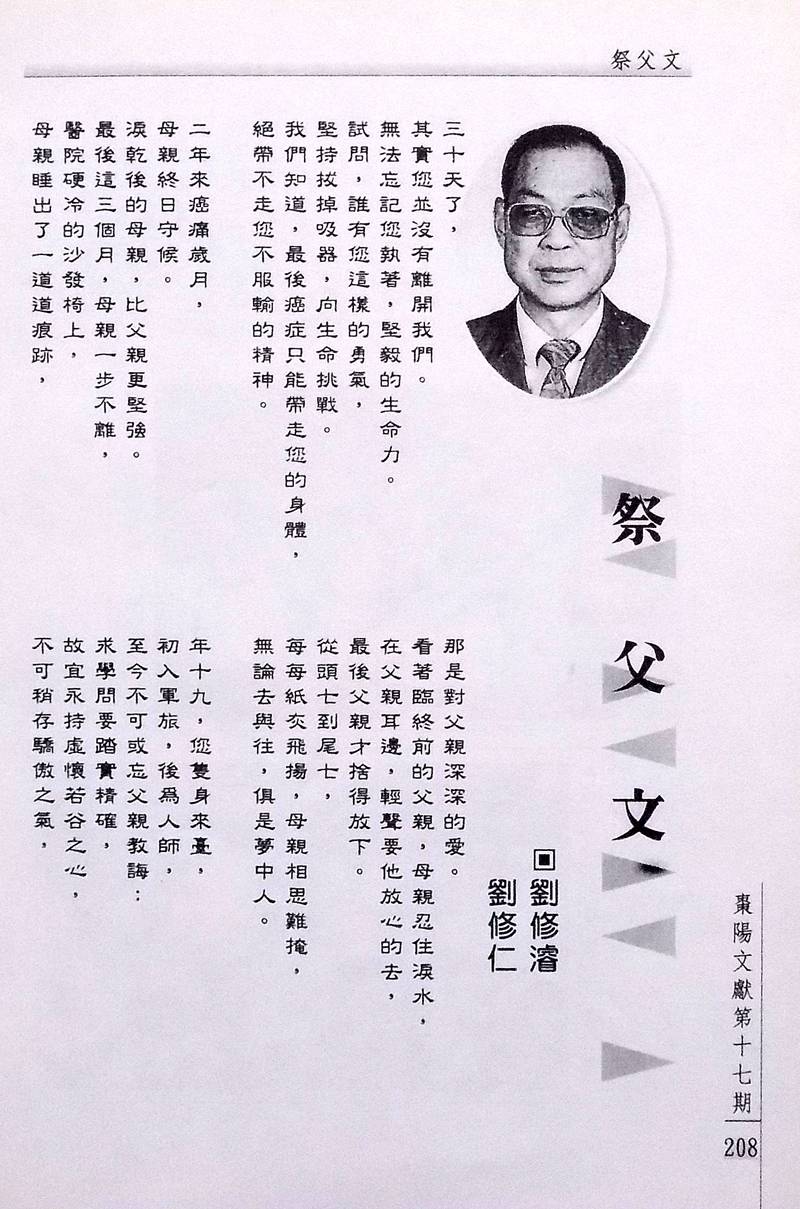 祭父文
祭父文
劉修濬
劉修仁
三十天了，
其實您並沒有離開我們。
無法忘記您執著，堅毅的生命力。
試問，誰有您這樣的勇氣，
堅持拔掉吸器，向生命挑戰。
我們知道，最後癌症只能帶走您的身體，
絕帶不走您不服輸的精神。
二年來癌痛歲月，
母親終日守候。
淚乾後的母親，比父親更堅強。
最後這三個月，母親一步不離，
醫院硬冷的沙發椅上，
母親睡出了一道道痕跡，
那是對父親深深的愛。
看著臨終前的父親，母親忍住淚水，
在父親耳邊，輕聲要他放心的去，
最後父親才捨得放下。
從頭七到尾七，
每每紙灰飛揚，母親相思難掩，
無論去與往，俱是夢中人。
年十九，您隻身來臺，
初入軍旅，後為人師，
至今不可或忘父親教誨：
求學問要踏實精確，
故宜永持虛懷若谷之心，
不可稍存驕傲之氣，
棗陽文獻第十七期
208